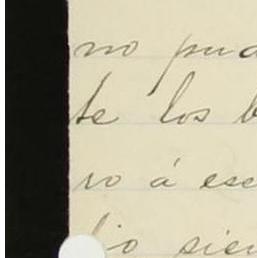 no pud
te los b
ro á esc
io sien